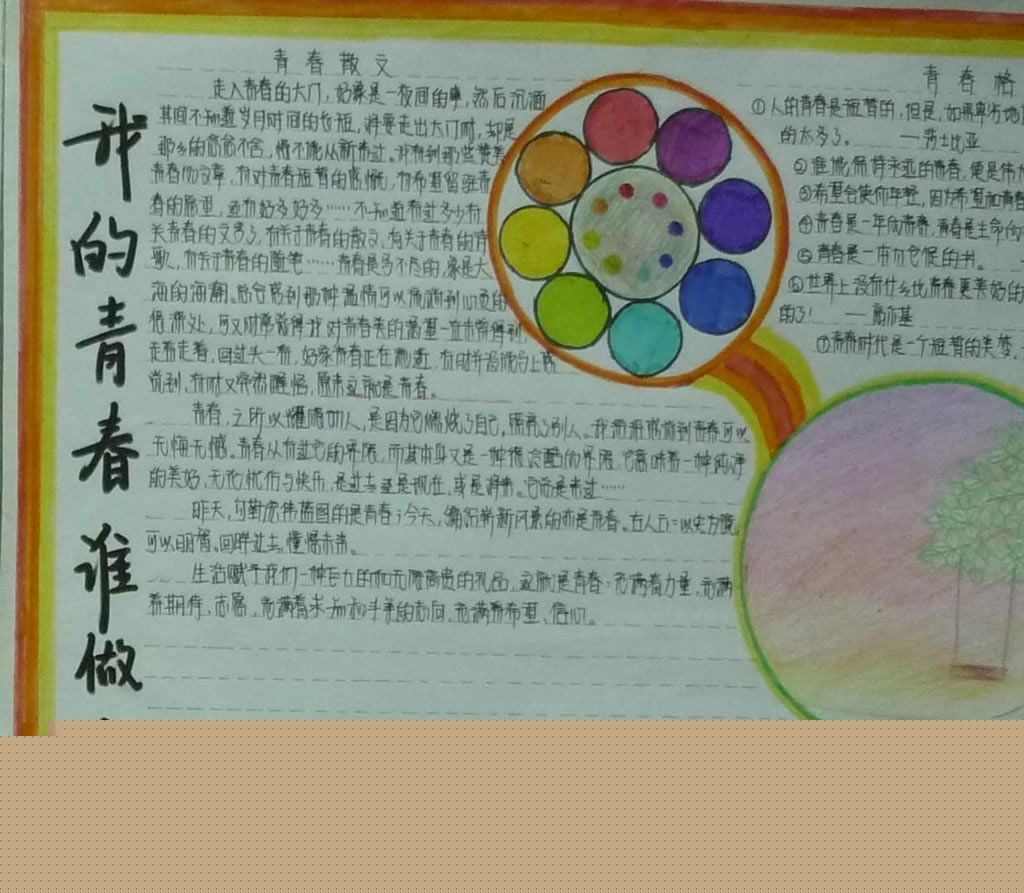 我的青春谁做
青春散文
走入青春的大门，好象是一夜间的事，然后沉湎
其间不知道岁月时间的长短，将要走出大门时，却是
那么的恋恋不舍，恨不能从新来过。我看到那些赞美
青春的文章，有对青春短暂的感慨，有希望留驻青
春的愿望，还有好多好多……不知道有过多少有
关青春的文字了，有关于青春的散文，有关于青春的诗
歌，有关于青春的随笔……青春是写不尽的，象是大
海的海潮。总会感到那种温情可以流淌到心灵的
很深处，可又时常觉得我对青春美的渴望一直未曾得到
走着走着，回过头一看，好象青春正在
到，有时又突然醒悟，原来这就是青春。
青春，之所以璀璨动人，是因为它燃烧了自己，照亮了别人。我渐渐感悟到青春可以
无悔无憾。青春从有过它的界限，而其本身又是一种很残酷的界限，它意味着一种纯净
的美好，无论忧伤与快乐，是过去还是现在，或是将来。它而是来过……
昨天，勾勒宏伟蓝图的是青春；今天，描绘崭新风景的亦是青春。以史为镜，
可以明智。回眸过去，憧憬未来。
生活赋予我们一种巨大的和无限高贵的礼品，这就是青春：充满着力量，充满
着期待、志愿，充满着求知和斗争的志向，充满着希望、信心。
青春格
①人的青春是短暂的，但是，如果卑劣地
的太多了。 ——莎士比亚
②谁能保持永远的青春，便是伟
③希望会使你年轻，因为希望和青春
④青春是一年
，青春是生命的
⑤青春是一本方仓促的书。
⑥世界上没有什么比青春更美好的
的了！ ——高尔基
⑦青春时代是一个短暂的美梦，